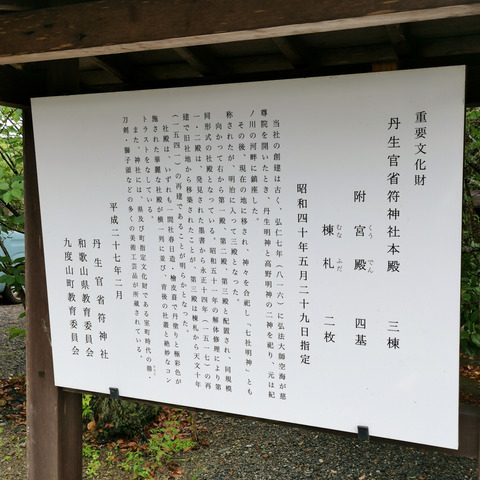 重要文化財
丹生官省符神社本殿 三棟
附 宮殿 四基
くう でん
棟札 二枚
むな ふだ
昭和四十年五月二十九日指定
当社の創建は古く、弘仁七年(八一六)に弘法大師空海が慈
尊院を開いたとき、丹生明神と高野明神の二神を祀り、元は紀
ノ川の河畔に鎮座した。
その後、現在の地に移され、神々を合祀し「七社明神」とも
称されたが、明治に入って三殿となった。
向かって右から第一殿、第二殿、第三殿と配置され、同規模
同形式の社殿となっている。昭和五十一年の解体修理により第
一・二殿は、発見された墨書から永正十四年(一五一七)の再
建で旧社地から移築されたことが、第三殿は棟札から天文十年
(一五四一)の再建であることが明らかとなった。
社殿は、いずれも一間社春日造・檜皮葺で丹塗りと極彩色が
施された華麗な社殿が横一列に並び、背後の社叢と絶妙なコン
トラストをなしている。
また、神社には、県及び町指定文化財である室町時代の
刀剣・獅子頭などの多くの美術工芸品が所蔵されている。
平成二十七年二月
丹生官省符神社
和歌山県教育委員会
九度山町教育委員会